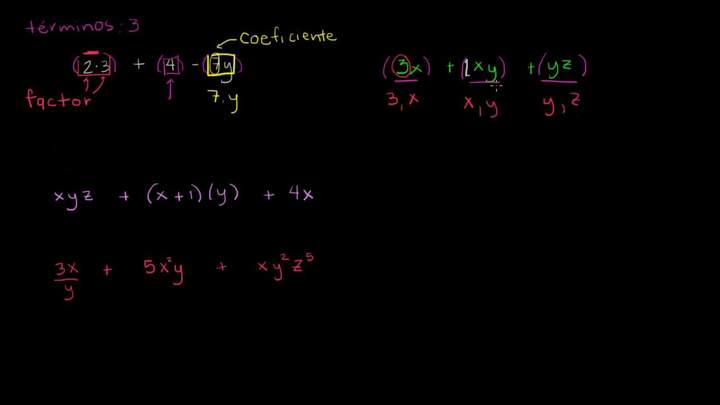 términos: 3
coeficiente
(2·3) + (4) - (7y)
factor
7, y
(3x) + (1xy) + (yz)
3, x x, y y, z
xyz + (x+1)(y) + 4x
3x/y + 5x²y + xy²z⁵